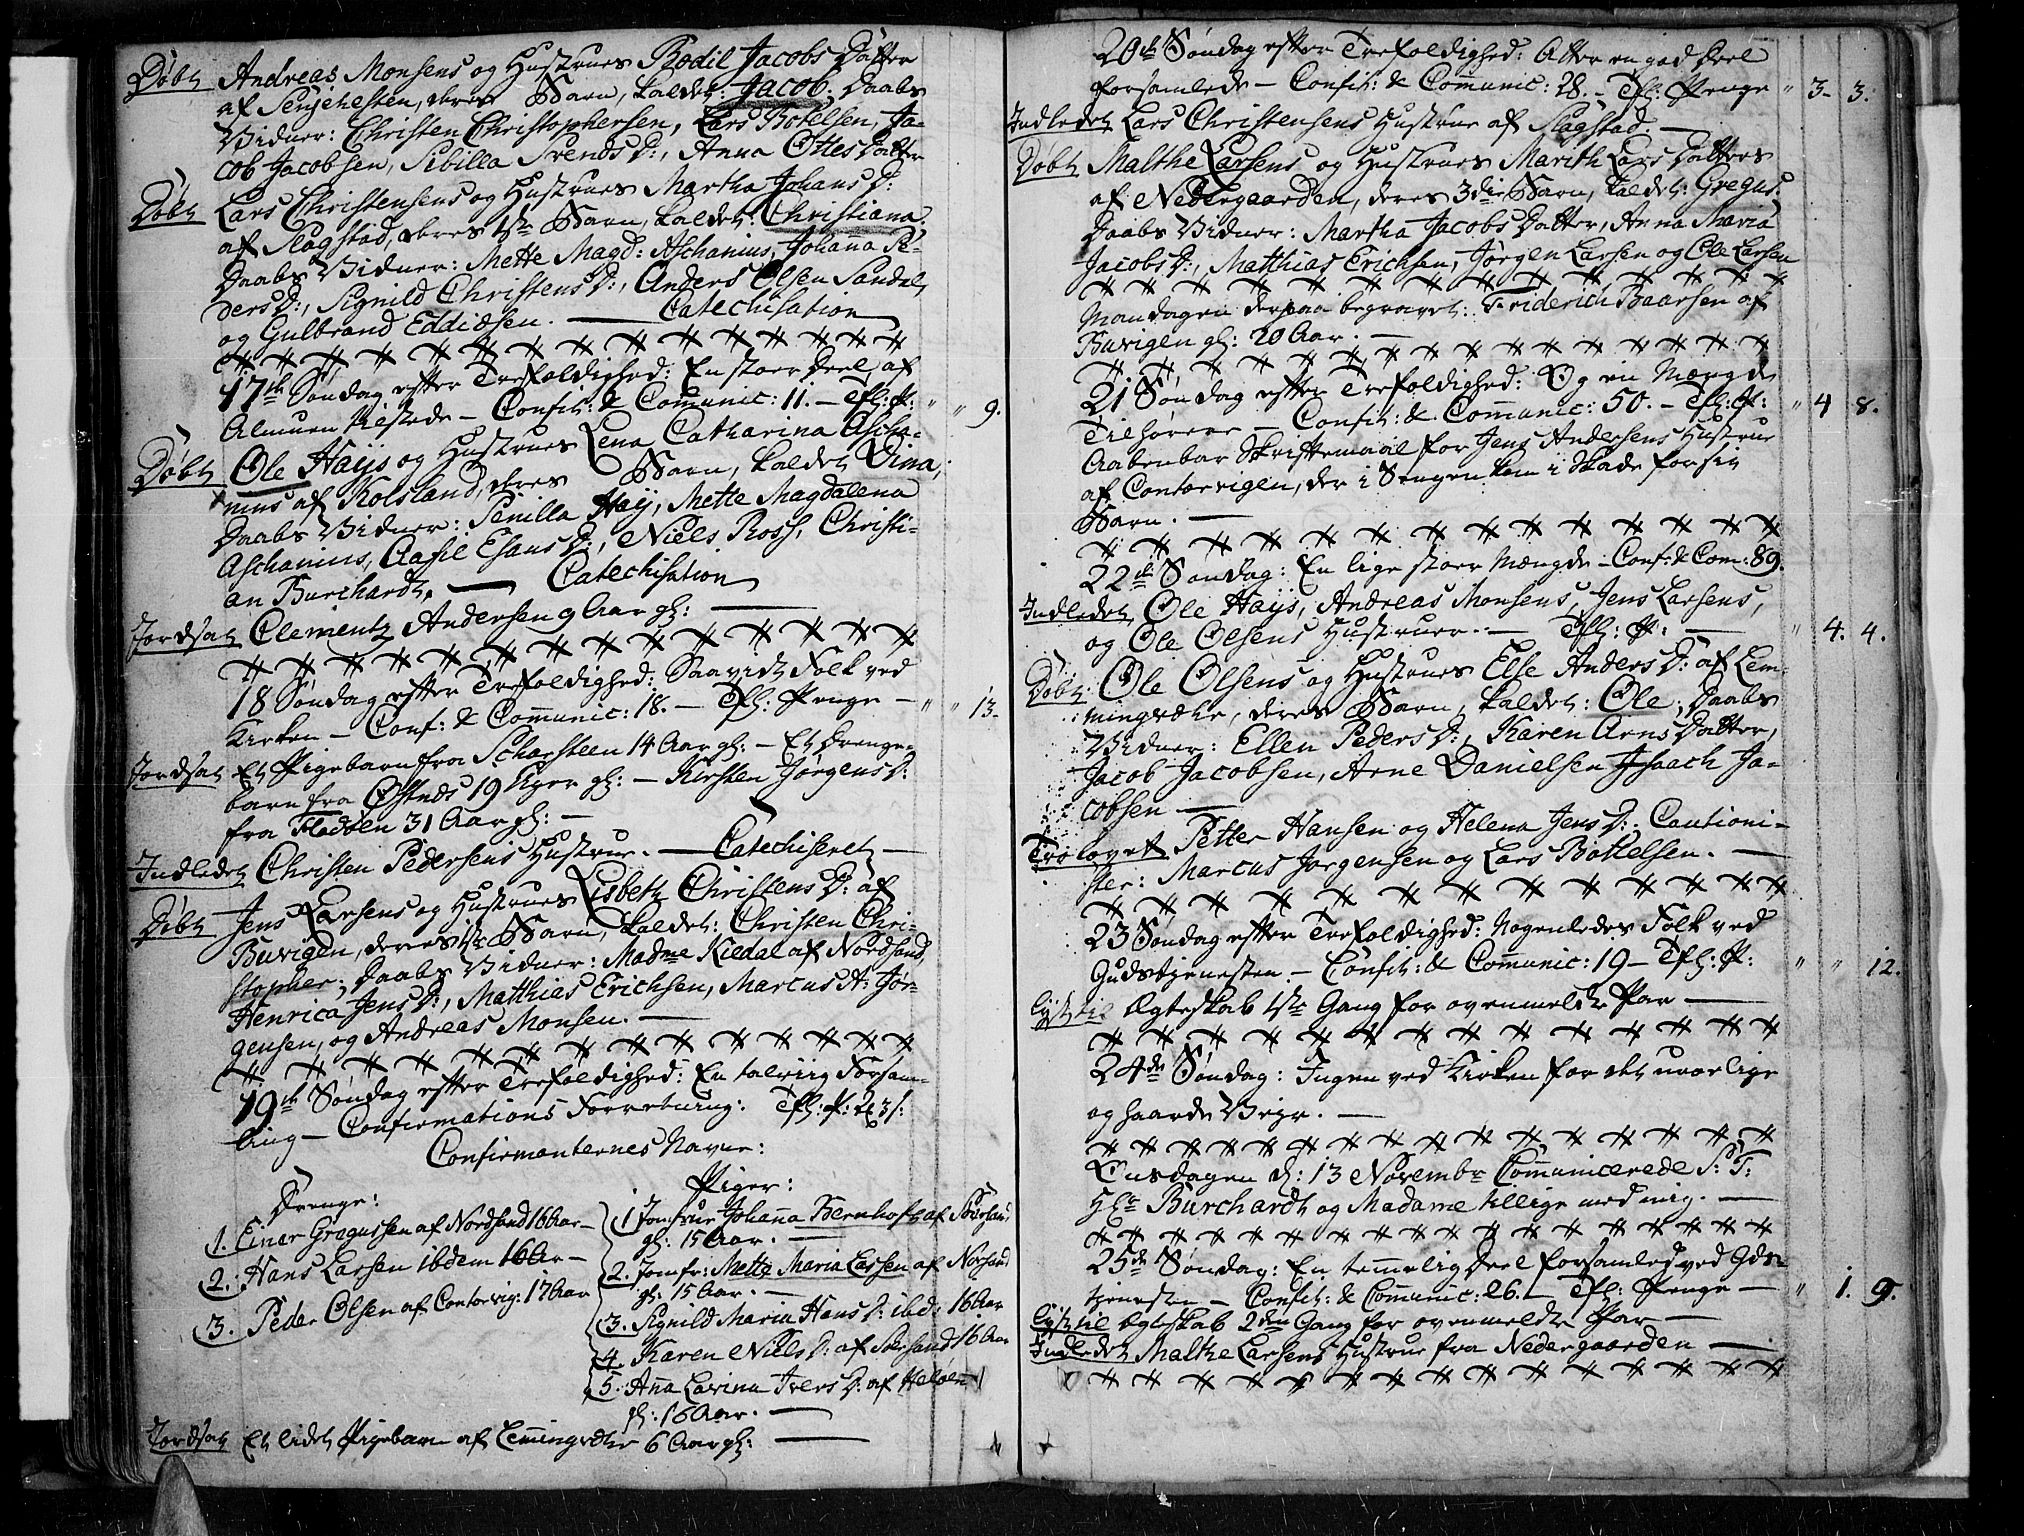 Døbt Andreas Monsens og Hustrues Bodil Jacobs Datter
af Senjehesten, deres Barn, kaldet: Jacob; Daabs
Vidner: Christen Christophersen, Lars Botelsen, Ja-
cob Jacobsen, Sibilla Svends D:, Anna Ottes Datter
Døbt Lars Christensens og Hustrues Martha Johans D:
af Slagstad, deres 1ste Barn, kaldet: Christiana.
Daabs Vidner: Mette Magd: Aschanius, Johana Pe-
ders D:, Signild Christens D:, Anders Olsen Sandal,
og Gulbrand Eddiæsen. — Catechisation
17de Søndag efter Trefoldighed: En stoer Deel af
Almuen tilstede – Confit: & Comunic: 11. – Tfl: P: " " 9.
Døbt Ole Hays og Hustrues Lena Catharina Ascha-
nius af Kolsland, deres Barn, kaldet Dina;
Daabs Vidner: Penilla Hay, Mette Magdalena
Aschanius, Aasil Esaus D:, Niels Ross, Christi-
an Burchardt. — Catechisation
Jordsat Clementz Andersen 9 Aar gl: —
18 Søndag efter Trefoldighed: Saavidt Folk ved
Kirken – Conf: & Comunic: 18. – Tfl: Penge – " " 13.
Jordsat Et Pigebarn fra Scharsteen 14 Aar gl: – Et Drenge-
barn fra Østnes 19 Uger gl: – Kirsten Jørgens D:
fra Fladsen 31 Aar gl: –
Indledet Christen Pedersens Hustrue. — Catechiseret —
Døbt Jens Larsens og Hustrues Lisbeth Christens D: af
Buvigen, deres 1ste Barn, kaldet: Christen Chri-
stopher; Daabs Vidner: Madme Kildal af Nordsand,
Henrica Jens D:, Matthias Erichsen, Marcus A: Jør-
gensen, og Andreas Monsen. —
19de Søndag efter Trefoldighed: En talriig Forsam-
ling – Confirmations Forretning: Tfl: P: 2 3 s:
Confirmanternes Navne:
Drenge:
1. Einar Gregussen af Nordsand 16 Aar –
2. Hans Larsen ibdem 16 Aar –
3. Peder Olsen af Contorvig: 17 Aar
Piger:
1 Jomfrue Johana Bernhoft af Sørsand
gl: 15 Aar. —
2. Jomfr: Mette Maria Lassen af Norsand
gl: 15 Aar. —
3. Signild Maria Hans D: ibd: 16 Aar
4. Karen Niels D: af Sørsand 16 Aar
5. Ana Lavina Ivers D: af Heløen
gl: 16 Aar. —
Jordsat Et lidet Pigebarn af Lemingvær 6 Aar gl: —
20de Søndag efter Trefoldighed: Atter en god Deel
forsamlede – Confit: & Comunic: 28. – Tfl: Penge " 3. 3.
Indledet Lars Christensens Hustrue af Slagstad. —
Døbt Malthe Larsens og Hustrues Marith Lars Datters
af Nedergaarden, deres 3die Barn, kaldet: Gregus.
Daabs Vidner: Martha Jacobs Datter, Anna Maria
Jacobs D:, Matthias Erichsen, Jørgen Larsen og Ole Larsen
Mandagen derpaa begravet: Friderich Baarsen af
Buvigen gl: 20 Aar. —
21 Søndag efter Trefoldighed: Og en Mængde
Tilhørere – Confit: & Comunic: 50. – Tfl: P: " 4 8.
Aabenbar Skriftemaal for Jens Andersens Hustrue
af Contorvigen, der i Sengen kom i Skade for sit
Barn. —
22de Søndag: En lige stoer Mængde – Conf: & Com: 89.
Indledet Ole Hays, Andreas Monsens, Jens Larsens,
og Ole Olsens Hustruer. – Tfl: P: — " 4. 4.
Døbt. Ole Olsens og Hustrues Else Anders D: af Lem-
mingvære, deres Barn, kaldet: Ole; Daabs
Vidner: Ellen Peders D:, Karen Arns Datter,
Jacob Jacobsen, Arne Danielsen Isaach Ja-
cobsen —
Trolovet Petter Hansen og Helena Jens D:, Cautioni-
ster: Marcus Jørgensen og Lars Bottelsen. —
23 Søndag efter Trefoldighed: Nogenledes Folk ved
Gudstjenesten – Confit: & Comunic: 19 – Tfl: P: " " 12.
Lyst til Egteskab 1ste Gang for ovenmeldte Par —
24de Søndag: Ingen ved Kirken for det urolige
og haarde Veyr. —
Onsdagen d: 13 Novembr Comunicerede S: T:
Hr Burchardt og Madame tillige med mig. —
25de Søndag: En temelig Deel forsamled ved Gds-
tjenesten – Confit: & Comunic: 26. – Tfl: Penge — " 1. 9.
Lyst til Egteskab 2den Gang for ovenmeldte Par —
Indledet Malthe Larsens Hustrue fra Nedergaarden —